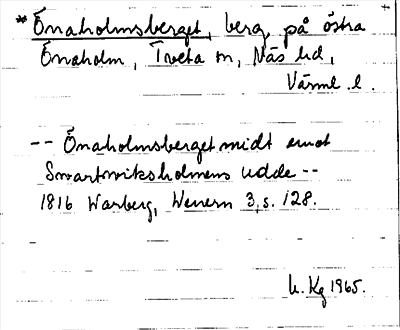 * Önaholmsberget, berg på östra
Önaholm, Tveta sn, Näs hd,
Värml. l.
-- Önaholmsberget midt emot
Svartsviksholmens udde --
1816 Warberg, Wenern 3, s. 128.
U. Kg 1965.